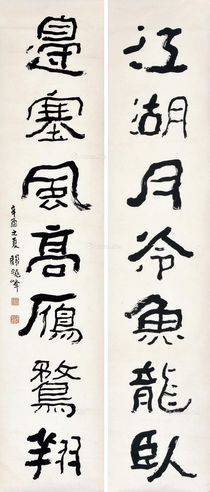 江湖月冷魚龍臥
邊塞風高鴈鶩翔
辛酉之夏